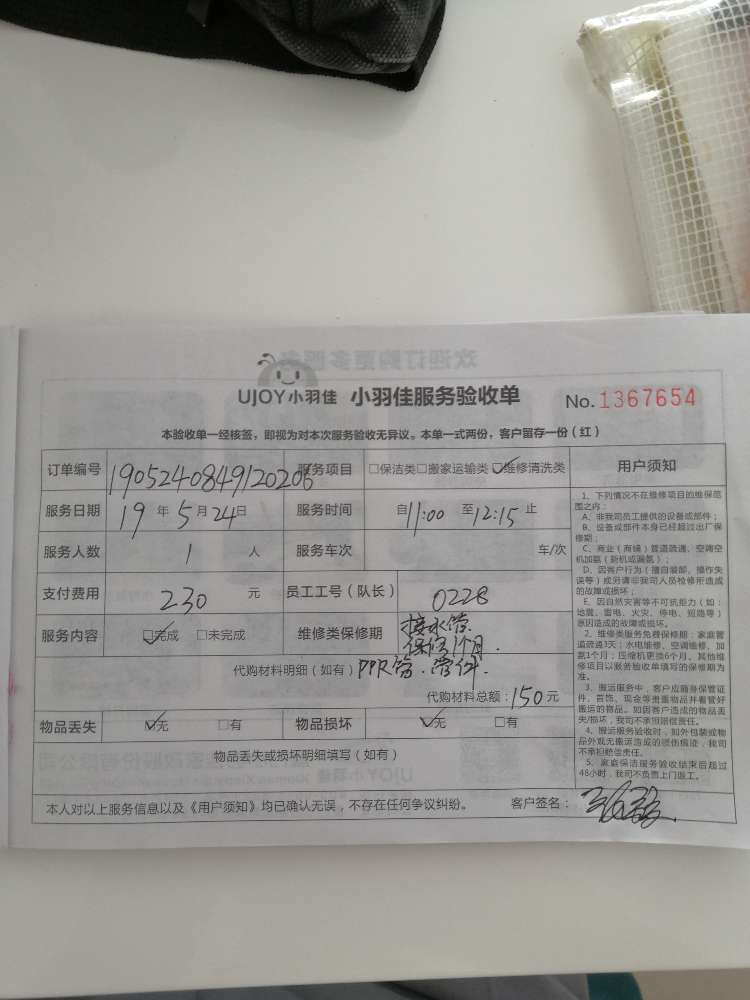 UJOY小羽佳 小羽佳服务验收单 No.1367654
本验收单一经核签，即视为对本次服务验收无异议。本单一式两份，客户留存一份（红）
订单编号 1905240849120206 服务项目 □保洁类 □搬家运输类 ☑维修清洗类
服务日期 19年5月24日 服务时间 自11:00至12:15止
服务人数 1人 服务车次 车/次
支付费用 230元 员工工号（队长） 0228
服务内容 ☑完成 □未完成 维修类保修期 接水管 保修1个月.
代购材料明细（如有）PPR管.管件.
代购材料总额：150元
物品丢失 ☑无 □有 物品损坏 ☑无 □有
物品丢失或损坏明细填写（如有）
本人对以上服务信息以及《用户须知》均已确认无误，不存在任何争议纠纷。 客户签名：
用户须知
1、下列情况不在维修项目的维保范
围之内：
A、非我司员工提供的设备或部件；
B、设备或部件本身已经超过出厂保
修期；
C、商业（商铺）管道疏通、空调空
机加氟（新机或漏氟）；
D、因客户行为（擅自装卸、操作失
误等）或另请非我司人员检修所造成
的故障或损坏；
E、因自然灾害等不可抗拒力（如：
地震、雷电、火灾、停电、短路等）
原因造成的故障或损坏。
2、维修类服务免费保修期：家庭管
道疏通3天；水电维修、空调维修、加
氟1个月；压缩机更换6个月，其他维
修项目以服务验收单填写的保修期为
准。
3、搬运服务中，客户应随身保管证
件、首饰、现金等贵重物品并看管好
搬运的物品。如因客户造成的物品丢
失/损坏，我司不承担赔偿责任。
4、搬运服务验收时，如外包装或物
品外观无搬运造成的损伤痕迹，我司
不承担赔偿责任。
5、家庭保洁服务验收结束后超过
48小时，我司不负责上门返工。